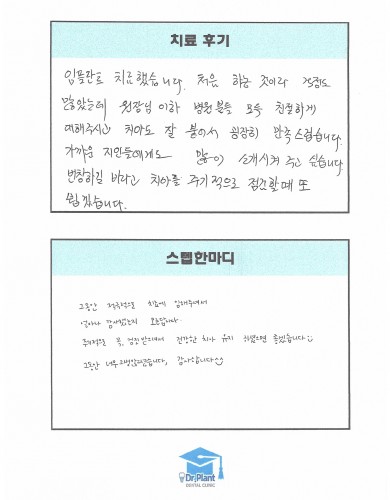 치료 후기
임플란트 치료했습니다. 처음 하는 것이라 걱정도
많았는데 원장님 이하 병원분들 모두 친절하게
대해주시고 치아도 잘 붙어서 굉장히 만족스럽습니다.
가까운 지인들에게도 많이 소개시켜 주고 싶습니다.
번창하길 바라고 치아를 주기적으로 점검할때 또
뵙겠습니다.
스탭한마디
그동안 적극적으로 치료에 임해주셔서
얼마나 감사했는지 모릅니다.
주기적으로 꼭, 검진 받으셔서 건강한 치아 유지 하셨으면 좋겠습니다
그동안 너무 고생많으셨습니다, 감사합니다
Dr.Plant
DENTAL CLINIC